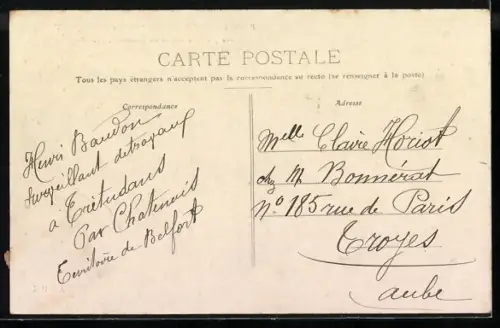 CARTE POSTALE
Tous les pays étrangers n'acceptent pas la correspondance au recto (se renseigner à la poste)
Correspondance
Henri Baudon
surveillant détravaux
a Trétudans
Par Chatenois
Territoire de Belfort
Adresse
Melle Claire Hociot
chez M Bonnérat
No 185 rue de Paris
Troyes
aube